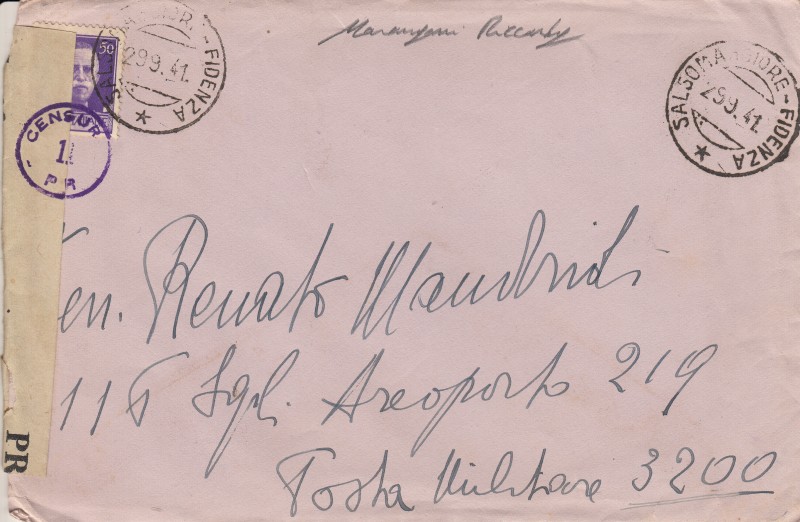 50
SALSOMAGGIORE-FIDENZA
29.9.41.
Riccardo
SALSOMAGGIORE-FIDENZA
29.9.41.
CENSUR
1
PR
Ten. Renato
Sql. Areoporto 219
Posta Militare 3200
PR